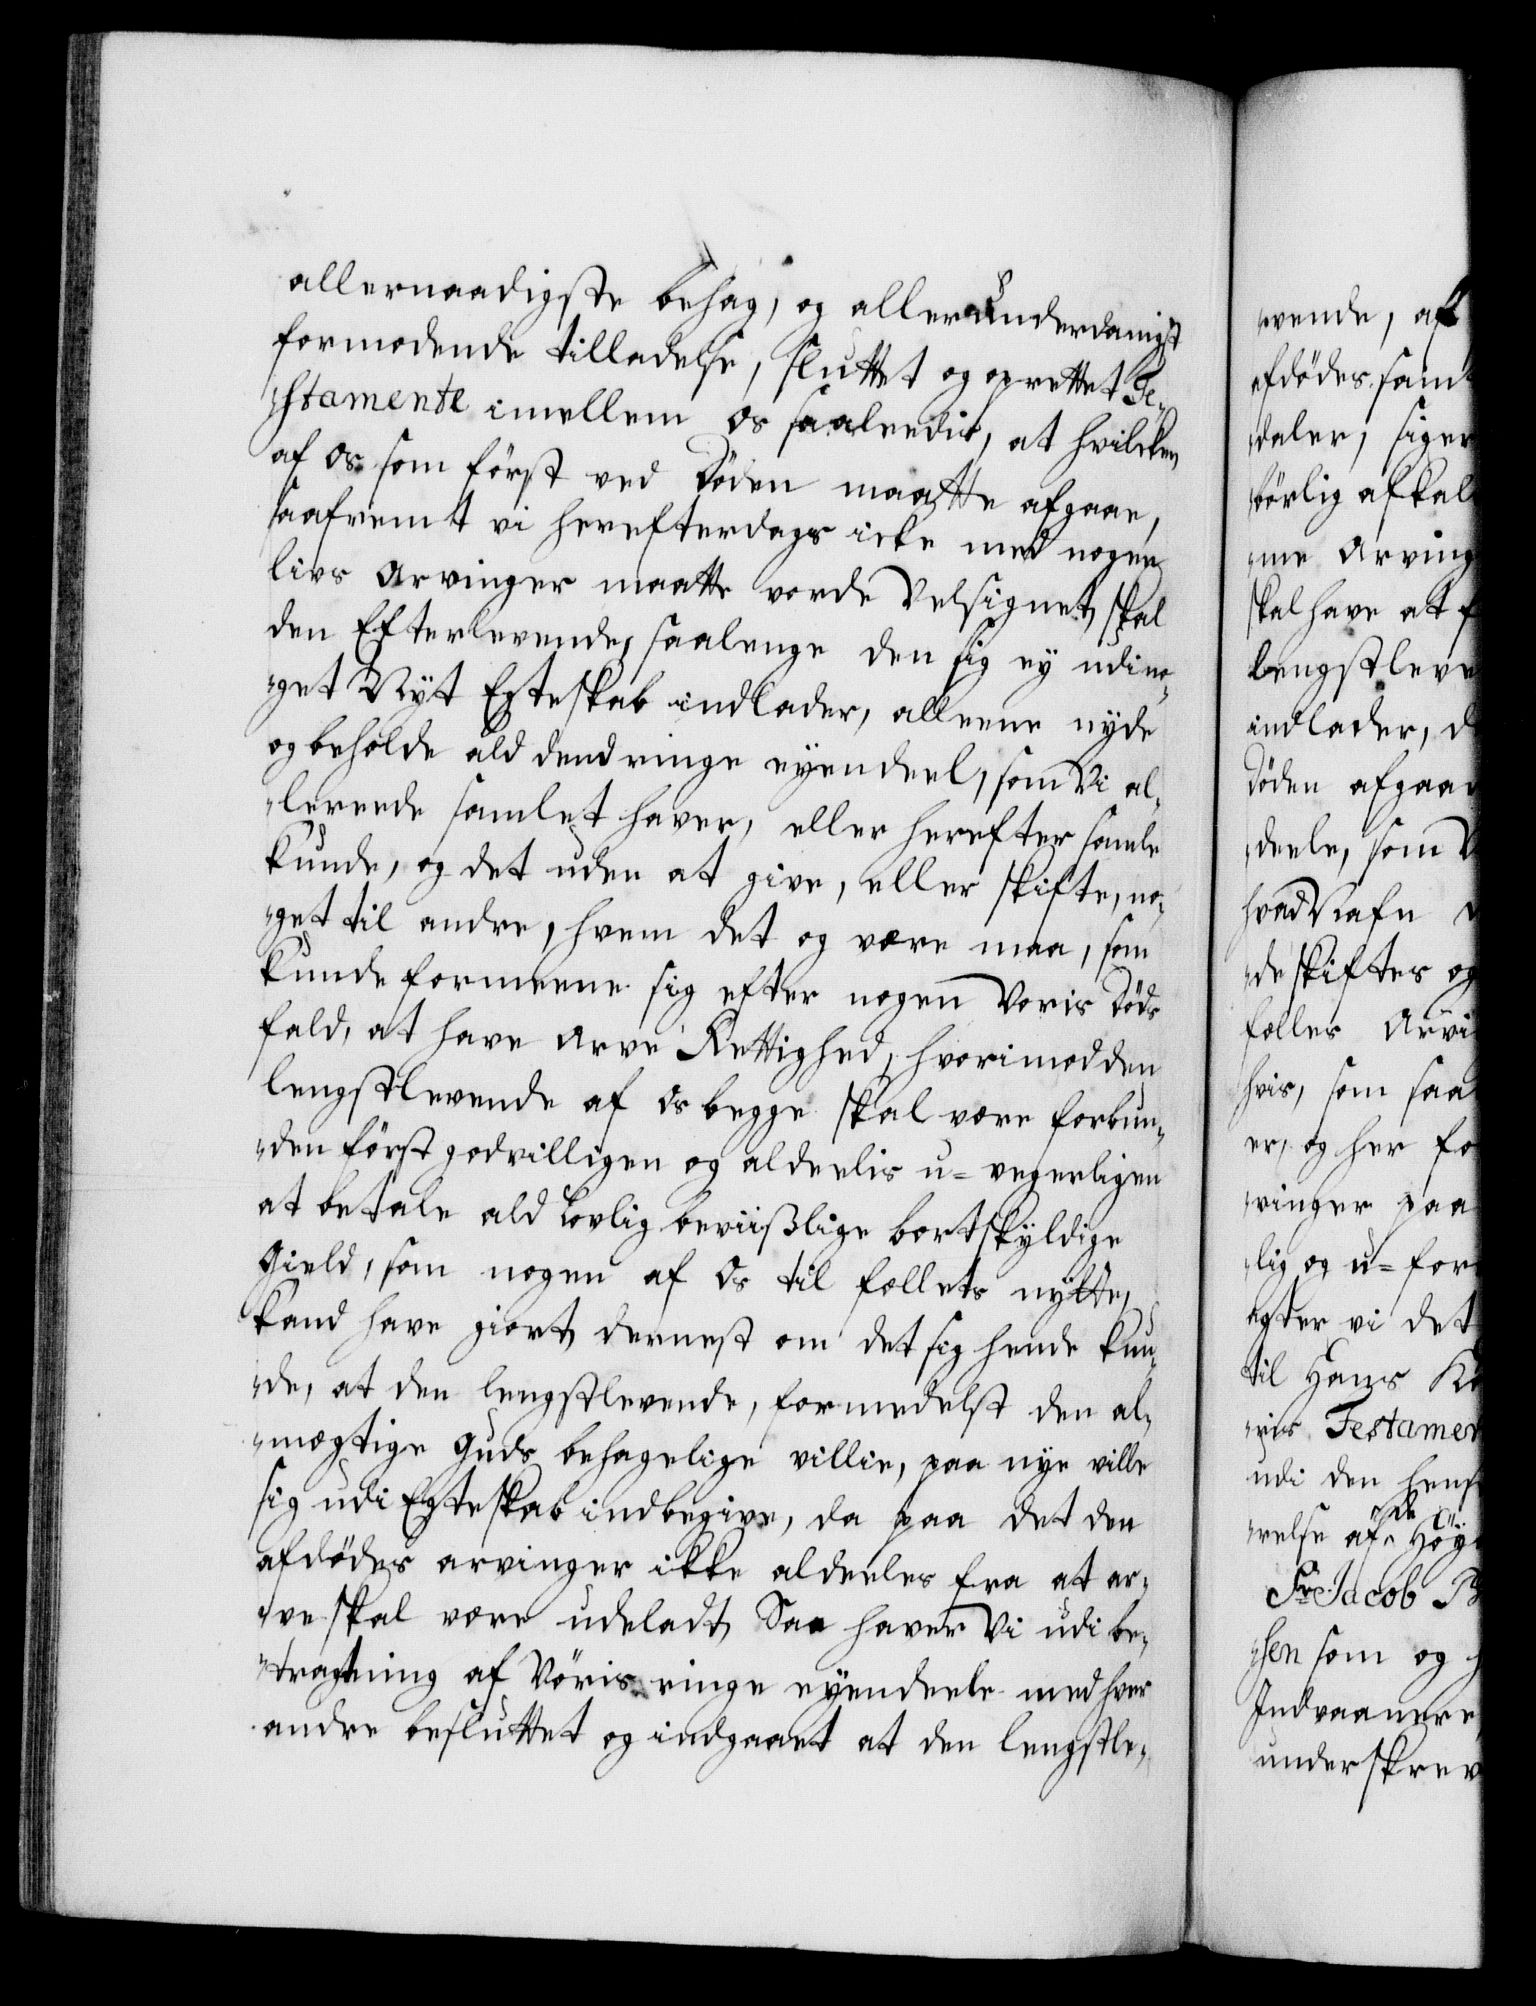 allernaadigste behag, og allerunderdanigst
formodende tilladelse, sluttet og oprettet Te-
stamente imellem os saaleedis, at hvilcken
af os som först ved Döden maatte afgaae,
saafremt vi herefterdags icke med nogen
livs Arvinger maatte vorde Velsignet, skal
den Efterlevende, saalenge den sig ey udi no-
get Nyt Egteskab indlader, alleene nyde
og beholde ald dend ringe eyendeel, som Vi al-
lereede samlet haver, eller herefter samle
kunde, og det uden at give, eller skifte, no-
get til andre, hvem det og være maa, som
kunde formeene sig efter nogen Voris Döds
fald, at have Arve Rettighed, hvorimod den
lengstlevende af os begge skal være forbun-
den först godvilligen og aldeelis u-vegerligen
at betale ald Lovlig beviißlige bortskyldige
Gield, som nogen af Os til fellets nytte,
kand have giort, dernest om det sig hende kun-
de, at den lengstlevende, formedelst den al-
mægtige Guds behagelige villie, paa nye ville
sig udi Egteskab indbegive, da paa det den
afdödes arvinger ikke aldeeles fra at ar-
ve skal være udeladt, Saa haver Vi udi be-
tragtning af Voris ringe eyendeele med hver
andre besluttet og indgaaet at den lengstle-
vende, af
afdödes samt
daler, siger
börlig afkal
me Arving
skal have at f
lengstleve
indlader, d
Döden afgaae
deele, som V
hvad Nafn
de skiftes og
felles Arvi
hvis, som saa
er, og her fo
vinger paa
lig og u-for
agter vi det
til Hans Ko
ris Testamen
udi den hens
relse af de Höy
Sr. Jacob B
sen som og h
Indvaanere
underskrev